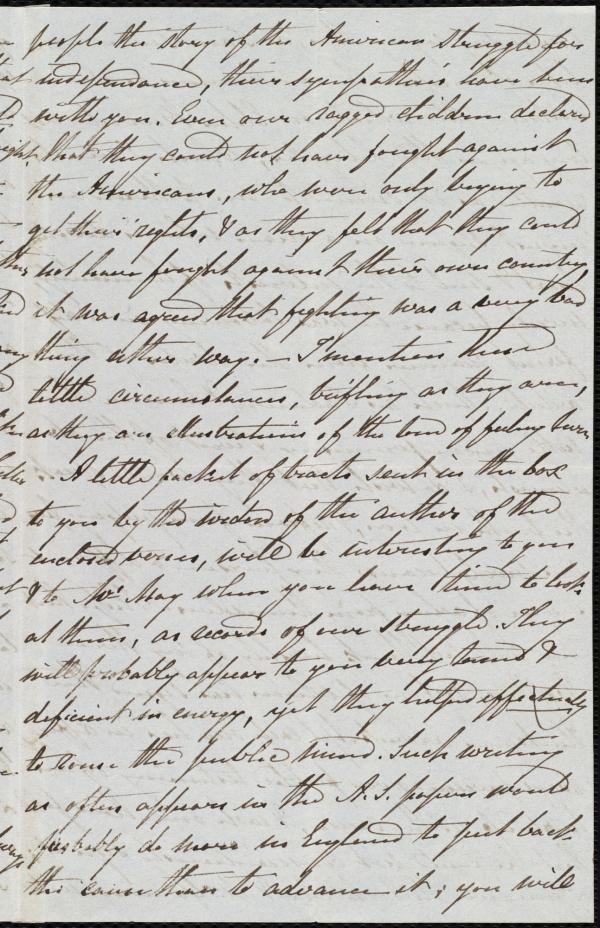 people the story of the American struggle for
independance, their sympathies have been
with you. Even our ragged children declared
that they could not have fought against
the Americans, who were only trying to
get their rights, & as they felt that they could
not have fought against their own country
it was agreed that fighting was a very bad
thing either way. — I mention these
little circumstances, trifling as they are,
as they are illustrations of the tone of feeling here.
A little packet of tracts sent in the box
to you by the widow of the author of the
enclosed verses, will be interesting to you
& to Mr. May when you have time to look
at them, as records of our struggle. They
will probably appear to you very tame &
deficient in energy, yet they helped effectually
to rouse the public mind. Such writing
as often appears in the A.S. papers would
probably do more in England to put back
the cause than to advance it; you will